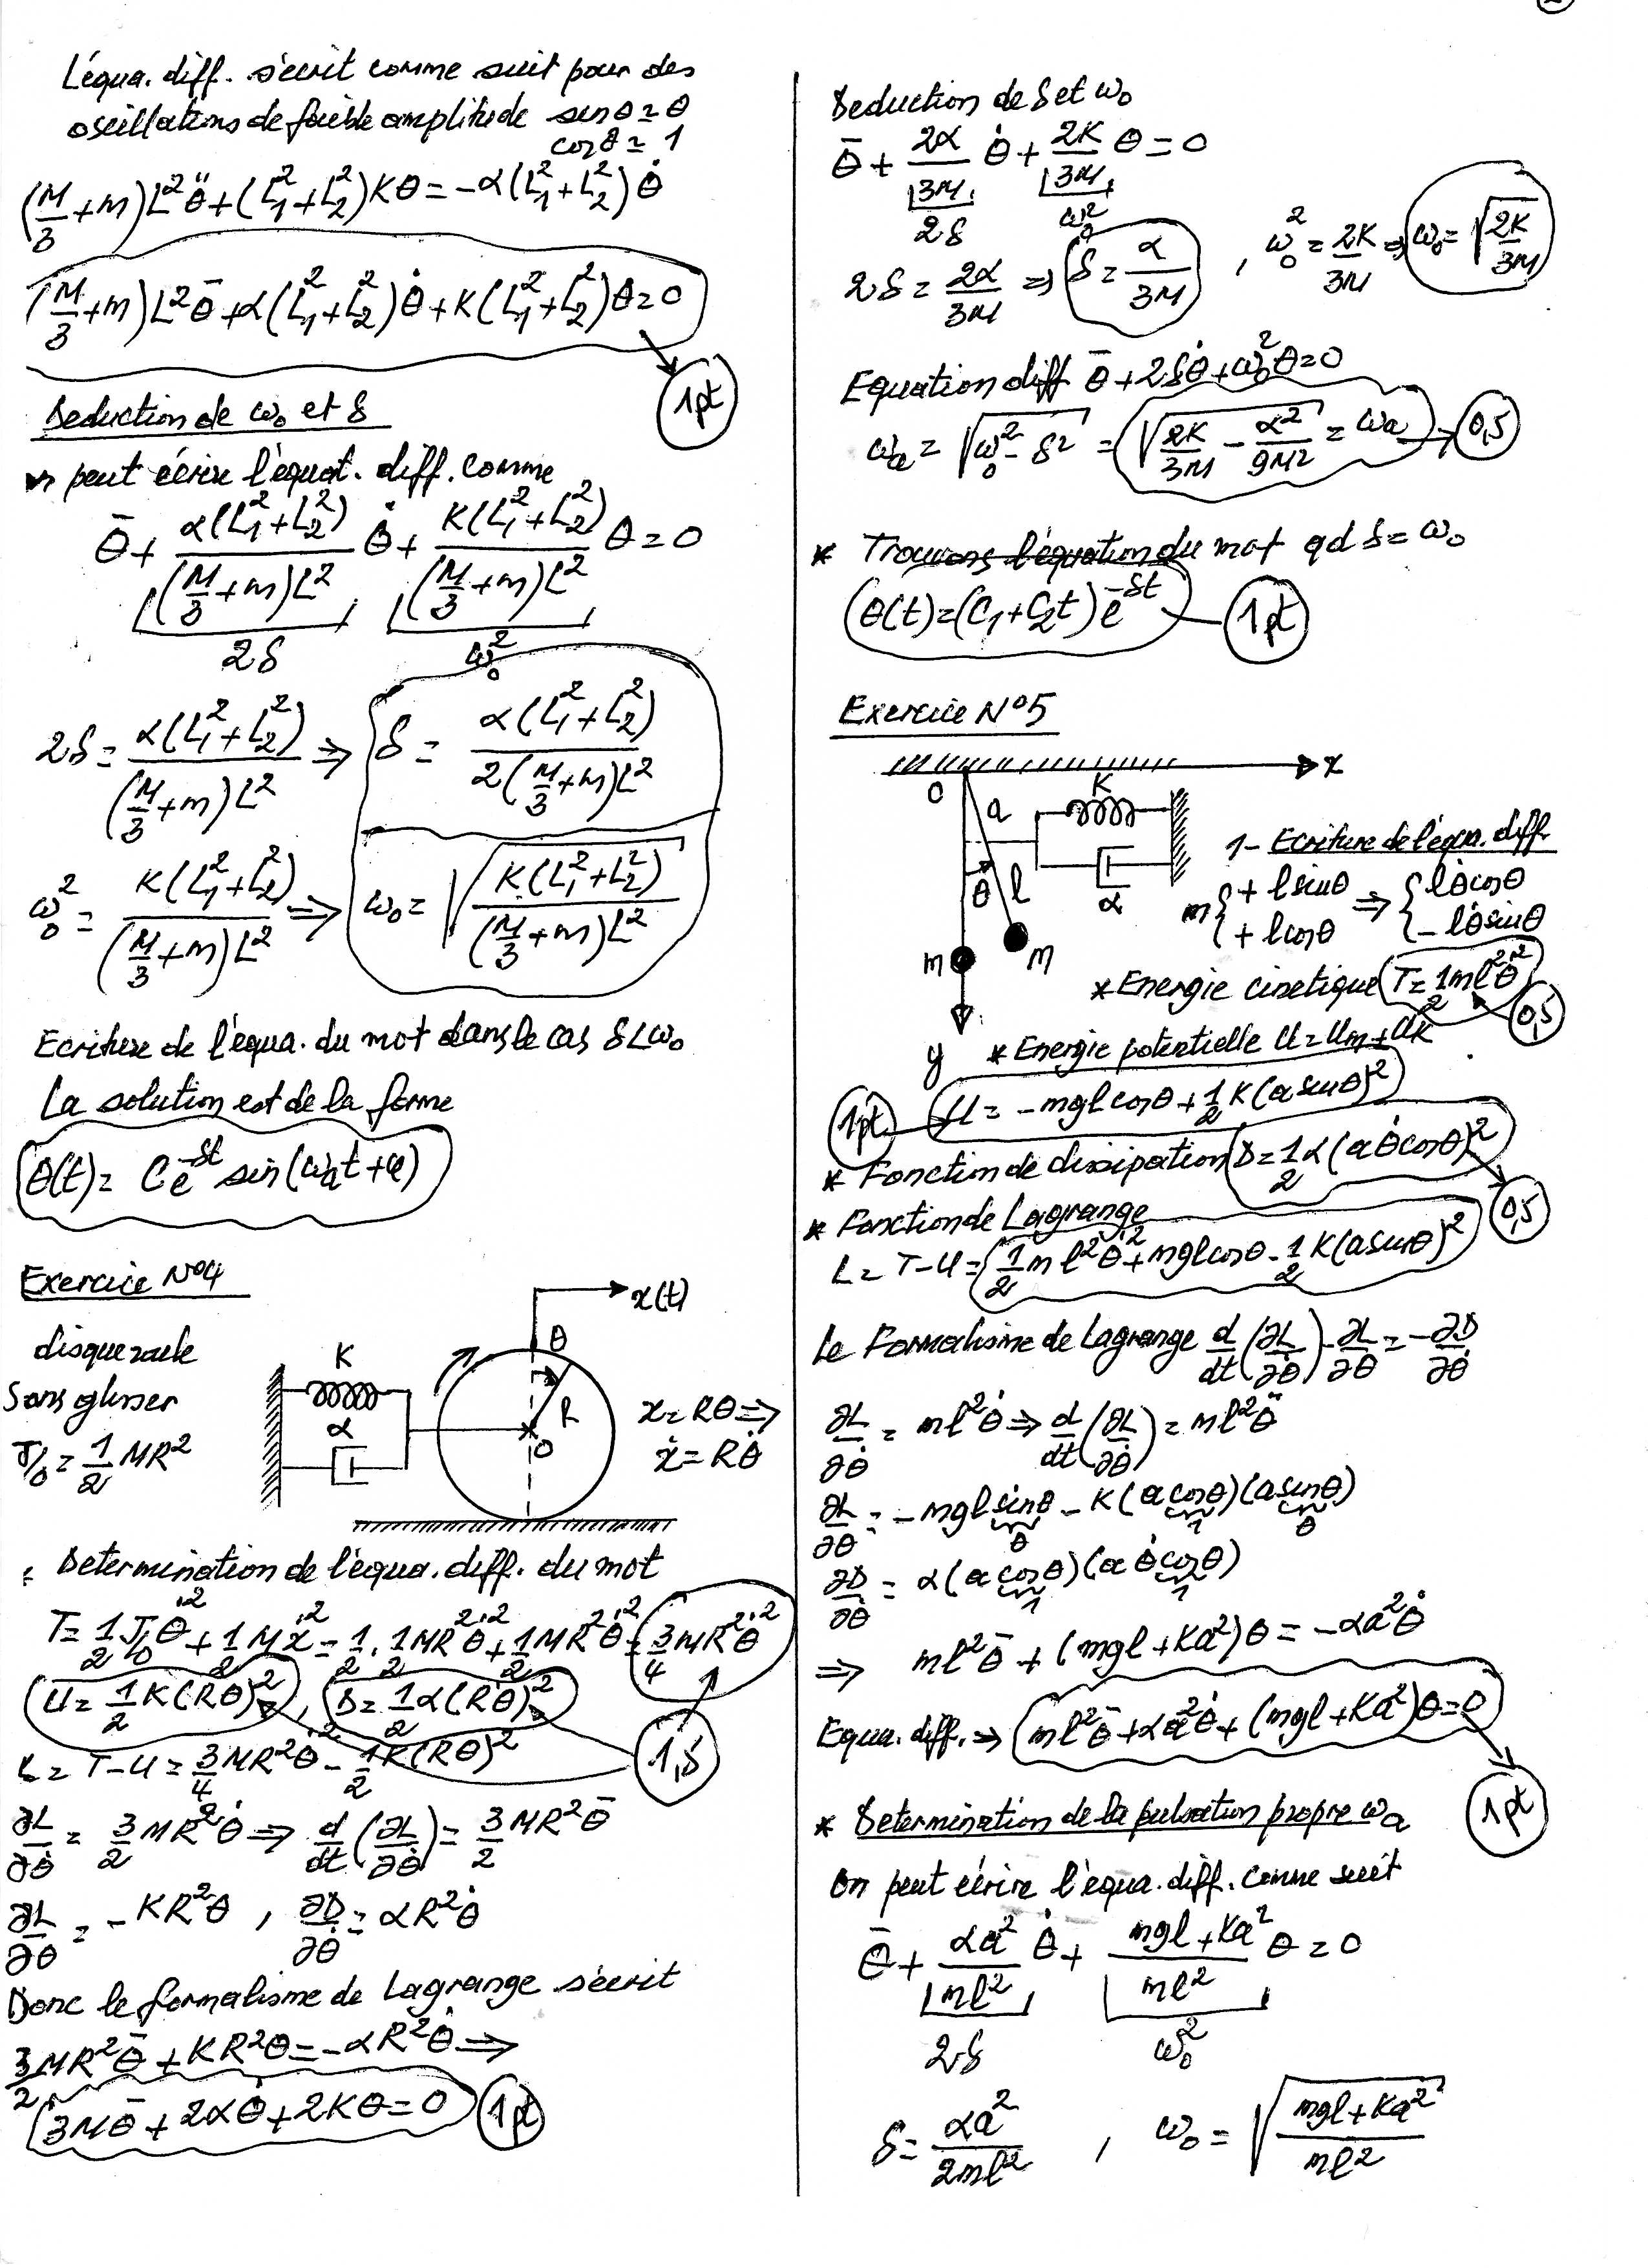 L'équa. diff. s'écrit comme suit pour des
oscillations de faible amplitude sinθ ≃ θ
cosθ ≃ 1
(M/3 + m)L²θ̈ + (L₁² + L₂²)Kθ = -α(L₁² + L₂²)θ̇
(M/3 + m)L²θ̈ + α(L₁² + L₂²)θ̇ + K(L₁² + L₂²)θ = 0
1pt
Deduction de ω₀ et δ
peut écrire l'équat. diff. comme
θ̈ + α(L₁² + L₂²)/((M/3 + m)L²) θ̇ + K(L₁² + L₂²)/((M/3 + m)L²) θ = 0
2δ ω₀²
2δ = α(L₁² + L₂²)/((M/3 + m)L²) ⇒ δ = α(L₁² + L₂²)/(2(M/3 + m)L²)
ω₀² = K(L₁² + L₂²)/((M/3 + m)L²) ⇒ ω₀ = √(K(L₁² + L₂²)/((M/3 + m)L²))
Ecriture de l'équa. du mot dans le cas δ < ω₀
La solution est de la forme
θ(t) = C e^(-δt) sin(ωₐt + φ)
Exercice N°4
disque roule
sans glisser
J/₀ = 1/2 MR²
x(t)
θ
K
α
R
O
x = Rθ ⇒
ẋ = Rθ̇
: Determination de l'équa. diff. du mot
T = 1/2 J/₀ θ̇² + 1/2 Mẋ² = 1/2 . 1/2 MR²θ̇² + 1/2 MR²θ̇² = 3/4 MR²θ̇²
U = 1/2 K(Rθ)² , D = 1/2 α(Rθ̇)²
1,5
L = T-U = 3/4 MR²θ̇² - 1/2 K(Rθ)²
∂L/∂θ̇ = 3/2 MR²θ̇ ⇒ d/dt (∂L/∂θ̇) = 3/2 MR²θ̈
∂L/∂θ = -KR²θ , ∂D/∂θ̇ = αR²θ̇
Donc le formalisme de Lagrange s'écrit
3/2 MR²θ̈ + KR²θ = -αR²θ̇ ⇒
3Mθ̈ + 2αθ̇ + 2Kθ = 0 1pt
Deduction de δ et ω₀
θ̈ + 2α/3M θ̇ + 2K/3M θ = 0
2δ ω₀²
2δ = 2α/3M ⇒ δ = α/3M , ω₀² = 2K/3M ⇒ ω₀ = √(2K/3M)
Equation diff θ̈ + 2δθ̇ + ω₀²θ = 0
ωₐ = √(ω₀² - δ²) = √(2K/3M - α²/9M²) = ωₐ 0,5
* Trouvons l'équation du mot qd δ = ω₀
θ(t) = (C₁ + C₂t) e^(-δt) 1pt
Exercice N°5
O
x
a
K
α
θ
l
m
m
y
1- Ecriture de l'équa. diff.
m { + l sinθ ⇒ { lθ̇cosθ
+ l cosθ - lθ̇sinθ
* Energie cinetique T = 1/2 ml²θ̇²
0,5
* Energie potentielle U = Um + Uk
1pt U = -mgl cosθ + 1/2 K(a sinθ)²
* Fonction de dissipation D = 1/2 α(aθ̇cosθ)²
0,5
* Fonction de Lagrange
L = T-U = 1/2 ml²θ̇² + mgl cosθ - 1/2 K(a sinθ)²
le Formalisme de Lagrange d/dt (∂L/∂θ̇) - ∂L/∂θ = -∂D/∂θ̇
∂L/∂θ̇ = ml²θ̇ ⇒ d/dt (∂L/∂θ̇) = ml²θ̈
∂L/∂θ = -mgl sinθ - K(a cosθ)(a sinθ)
θ 1 θ
∂D/∂θ̇ = α(a cosθ)(aθ̇ cosθ)
1 1
⇒ ml²θ̈ + (mgl + Ka²)θ = -αa²θ̇
Equa. diff. ⇒ ml²θ̈ + αa²θ̇ + (mgl + Ka²)θ = 0
1pt
* Determination de la pulsation propre ωₐ
On peut écrire l'équa. diff. comme suit
θ̈ + αa²/ml² θ̇ + (mgl + Ka²)/ml² θ = 0
2δ ω₀²
δ = αa²/2ml² , ω₀ = √((mgl + Ka²)/ml²)